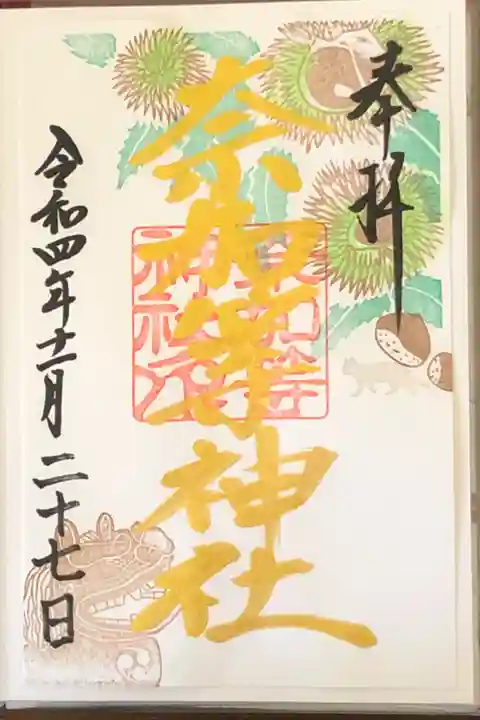 奉拝
奈加等神社
令和四年十二月二十七日